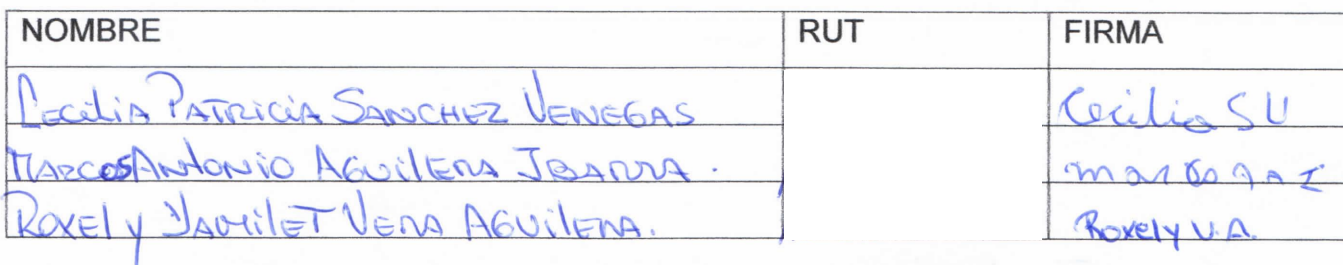 NOMBRE RUT FIRMA
Cecilia Patricia Sanchez Venegas Cecilia S V
Marcos Antonio Aguilera Ibarra. marcos A A I
Roxely Yamilet Vera Aguilera. Roxely V.A.